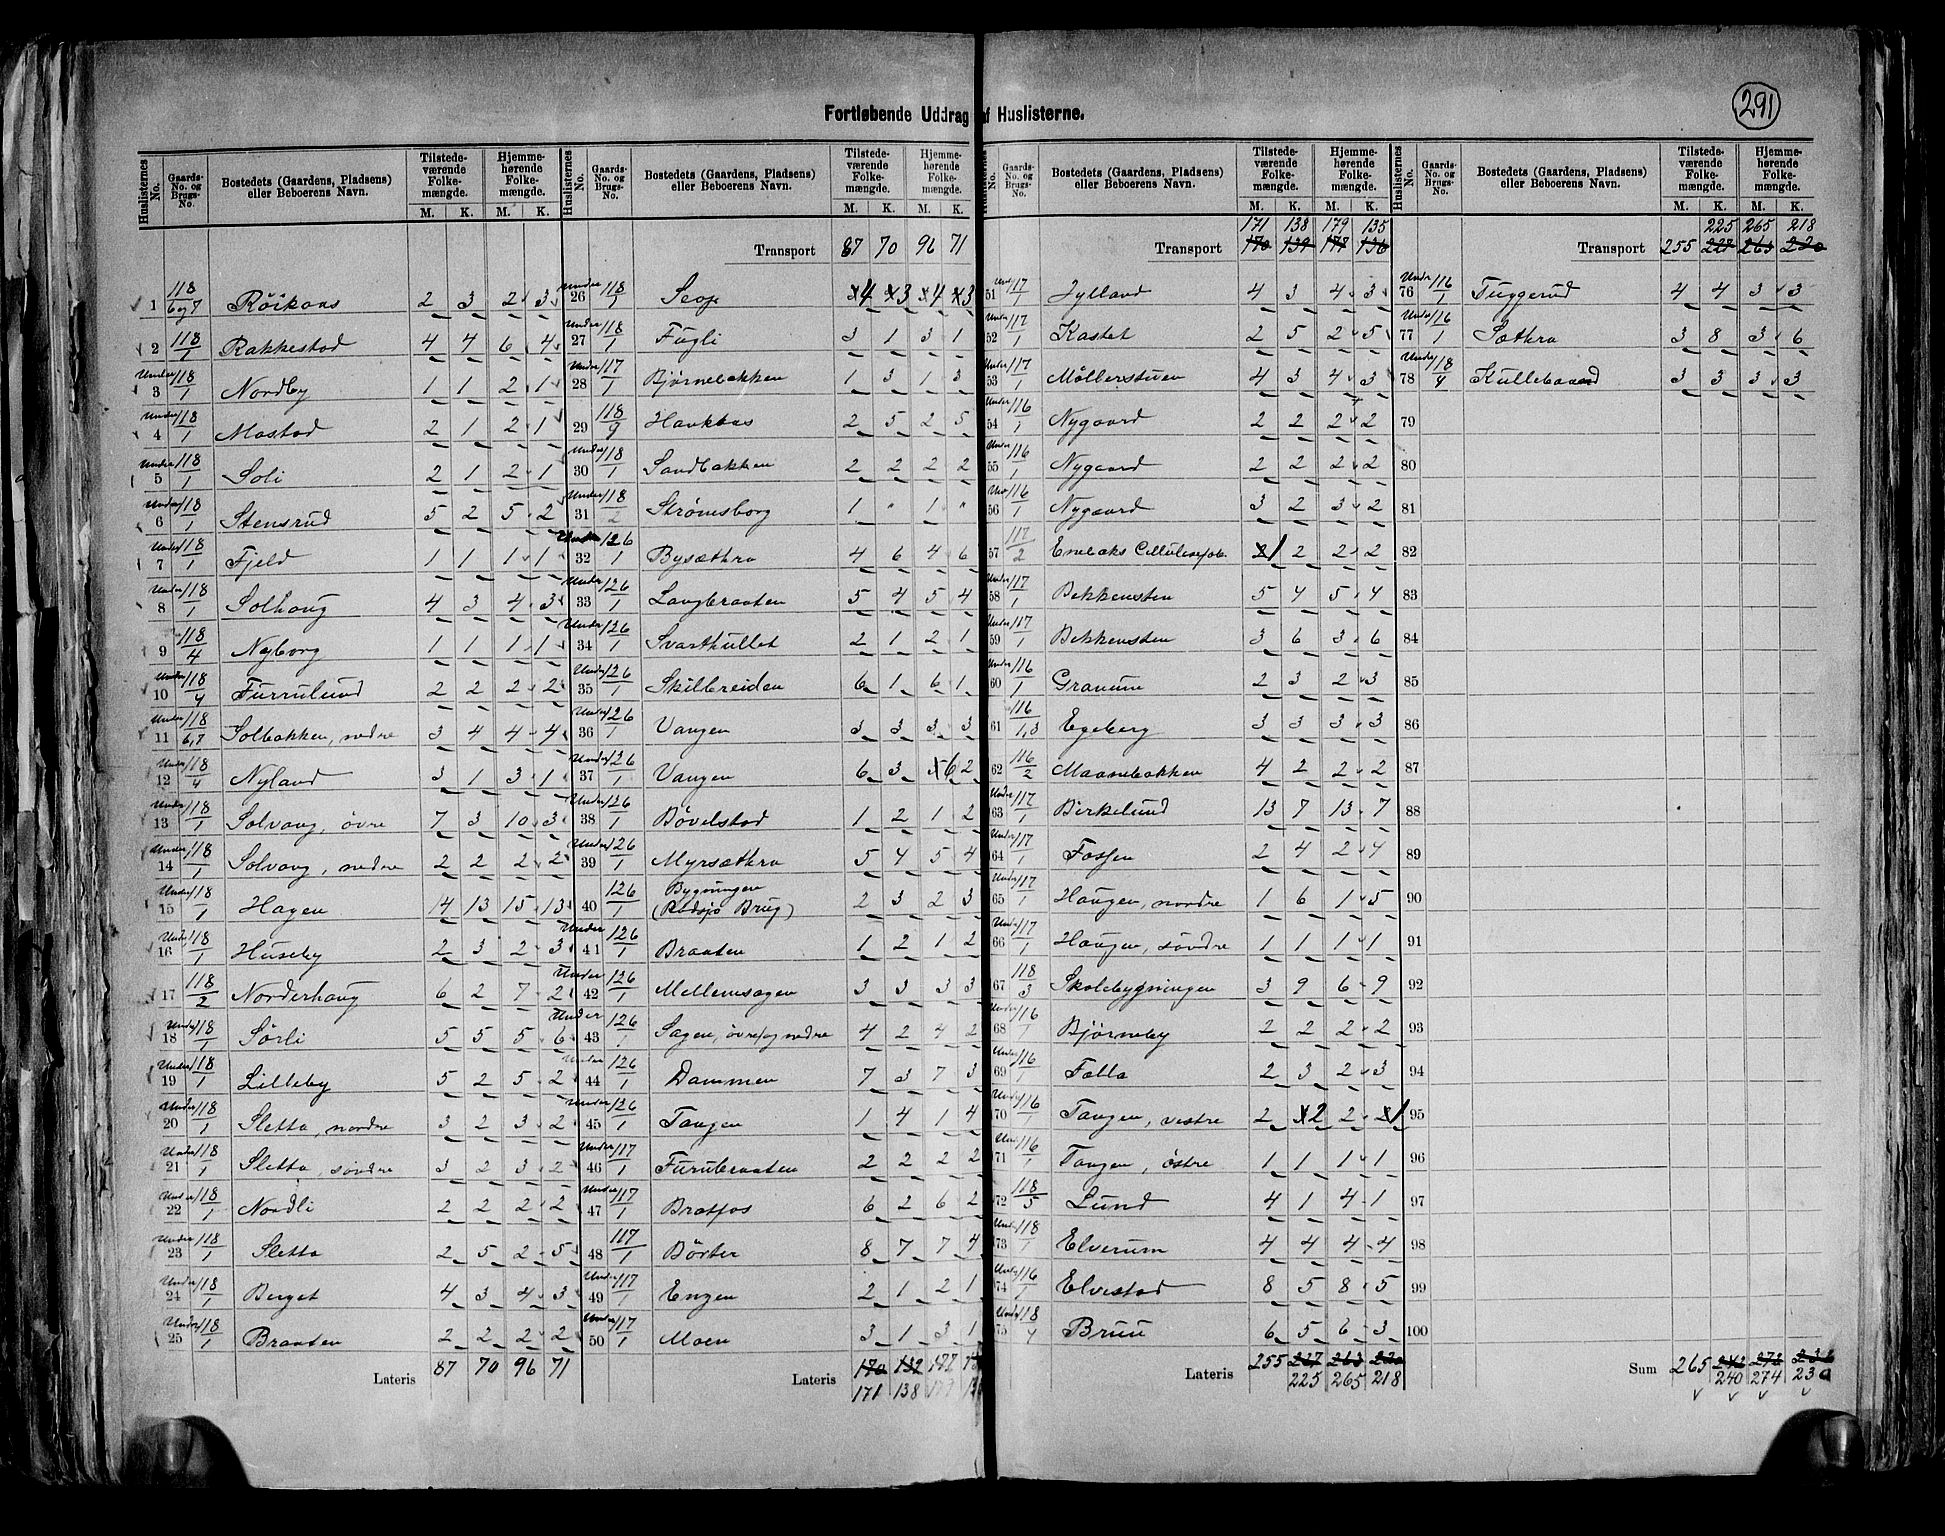 291
Fortløbende Uddrag af Huslisterne.
Huslisternes No. Gaards-No. og Brugs-No. Bostedets (Gaardens, Pladsens) eller Beboerens Navn. Tilstedeværende Folkemængde. M. K. Hjemmehørende Folkemængde. M. K.
1 118/6 og 7 Röikaas 2 3 2 3
2 118/1 Rakkestad 4 4 6 4
3 Under 118/1 Nordby 1 1 2 1
4 Under 118/1 Mostad 2 1 2 1
5 Under 118/1 Soli 2 1 2 1
6 Under 118/1 Stensrud 5 2 5 2
7 Under 118/1 Fjeld 1 1 1 1
8 Under 118/1 Solhaug 4 3 4 3
9 118/4 Nyborg 1 1 1 1
10 Under 118/4 Furrulund 2 2 2 2
11 Under 118/6,7 Solbakken, nedre 3 4 4 4
12 Under 118/4 Nyland 3 1 3 1
13 Under 118/1 Solvang, øvre 7 3 10 3
14 Under 118/1 Solvang, nedre 2 2 2 2
15 Under 118/1 Hagen 14 13 15 13
16 Under 118/1 Huseby 2 3 2 3
17 118/2 Norderhaug 6 2 7 2
18 Under 118/1 Sörli 5 5 5 6
19 Under 118/1 Lilleby 5 2 5 2
20 Under 118/1 Sletta, nordre 3 2 3 2
21 Under 118/1 Sletta, søndre 3 2 3 2
22 Under 118/1 Nordli 2 2 2 2
23 Under 118/1 Sletta 2 5 2 5
24 Under 118/1 Berget 4 3 4 3
25 Under 118/1 Braaten 2 2 2 2
Lateris 87 70 96 71
Huslisternes No. Gaards-No. og Brugs-No. Bostedets (Gaardens, Pladsens) eller Beboerens Navn. Tilstedeværende Folkemængde. M. K. Hjemmehørende Folkemængde. M. K.
Transport 87 70 96 71
26 Under 118/1 4 3 4 3
27 Under 118/1 Fugli 3 1 3 1
28 Under 117/1 Bjørnebakken 1 3 1 3
29 118/9 Haukaas 2 5 2 5
30 Under 118/1 Sandbakken 2 2 2 2
31 Under 118/2 Strömsborg 1 " 1 "
32 Under 126/1 Bysæthra 4 6 4 6
33 Under 126/1 Langbraaten 5 4 5 4
34 Under 126/1 Svarthullet 2 1 2 1
35 Under 126/1 Skilbreiden 6 1 6 1
36 Under 126/1 Vangen 3 3 3 3
37 Under 126/1 Vangen 6 3 6 2
38 Under 126/1 Bövelstad 1 2 1 2
39 Under 126/1 Myrsæthra 5 4 5 4
40 126/1 Bygningen (Rødsjø Brug) 2 3 2 3
41 Under 126/1 Braaten 1 2 1 2
42 Under 126/1 Mellemsagen 3 3 3 3
43 Under 126/1 Sagen, øvre og nedre 4 2 4 2
44 Under 126/1 Dammen 7 3 7 3
45 Under 126/1 Tangen 1 4 1 4
46 Under 117/1 Furubraaten 2 2 2 2
47 Under 117/1 Bratfos 6 2 6 2
48 117/1 Börter 8 7 7 4
49 Under 117/1 Engen 2 1 2 1
50 Under 117/1 Moen 3 1 3 1
Lateris 170 139 177
171 138 179
No. Gaards-No. og Brugs-No. Bostedets (Gaardens, Pladsens) eller Beboerens Navn. Tilstedeværende Folkemængde. M. K. Hjemmehørende Folkemængde. M. K.
171 138 179 135
Transport 170 139 177 136
51 Und 117/1 Jylland 4 3 4 3
52 Under 117/1 Kastet 2 5 2 5
53 Under 117/1 Möllerstuen 4 3 4 3
54 Under 116/1 Nygaard 2 2 2 2
55 Under 116/1 Nygaard 2 2 2 2
56 Und 116/1 Nygaard 3 2 3 2
57 117/2 1 2 2 2
58 Under 117/1 Bekkensten 5 4 5 4
59 Under 117/1 Bekkensten 3 6 3 6
60 Under 116/1 Granum 2 3 2 3
61 116/1,3 Egeberg 3 3 3 3
62 116/2 Maanebakken 4 2 2 2
63 Under 117/1 Birkelund 13 7 13 7
64 Under 117/1 Fossen 2 4 2 4
65 Under 117/1 Haugen, nordre 1 6 1 5
66 Under 117/1 Haugen, søndre 1 1 1 1
67 118/3 Skolebygningen 3 9 6 9
68 Under 116/1 Bjørneby 2 2 2 2
69 Under 116/1 Falla 2 3 2 3
70 Under 116/1 Tangen, vestre 2 2 2 1
71 Under 116/1 Tangen, östre 1 1 1 1
72 118/5 Lund 4 1 4 1
73 Under 118/1 Elverum 4 4 4 4
74 Under 116/1 Elvestad 8 5 8 5
75 Under 118/4 Bruu 6 5 6 3
Lateris 255 227 263 220
225 265 218
Huslisternes No. Gaards-No. og Brugs-No. Bostedets (Gaardens, Pladsens) eller Beboerens Navn. Tilstedeværende Folkemængde. M. K. Hjemmehørende Folkemængde. M. K.
225 265 218
Transport 255 227 263 220
76 Under 116/1 Tuggerud 4 4 3 3
77 Under 116/1 Sæthra 3 8 3 6
78 Under 118/4 Kullebaand 3 3 3 3
79
80
81
82
83
84
85
86
87
88
89
90
91
92
93
94
95
96
97
98
99
100
Sum 265 242 272 232
240 274 230